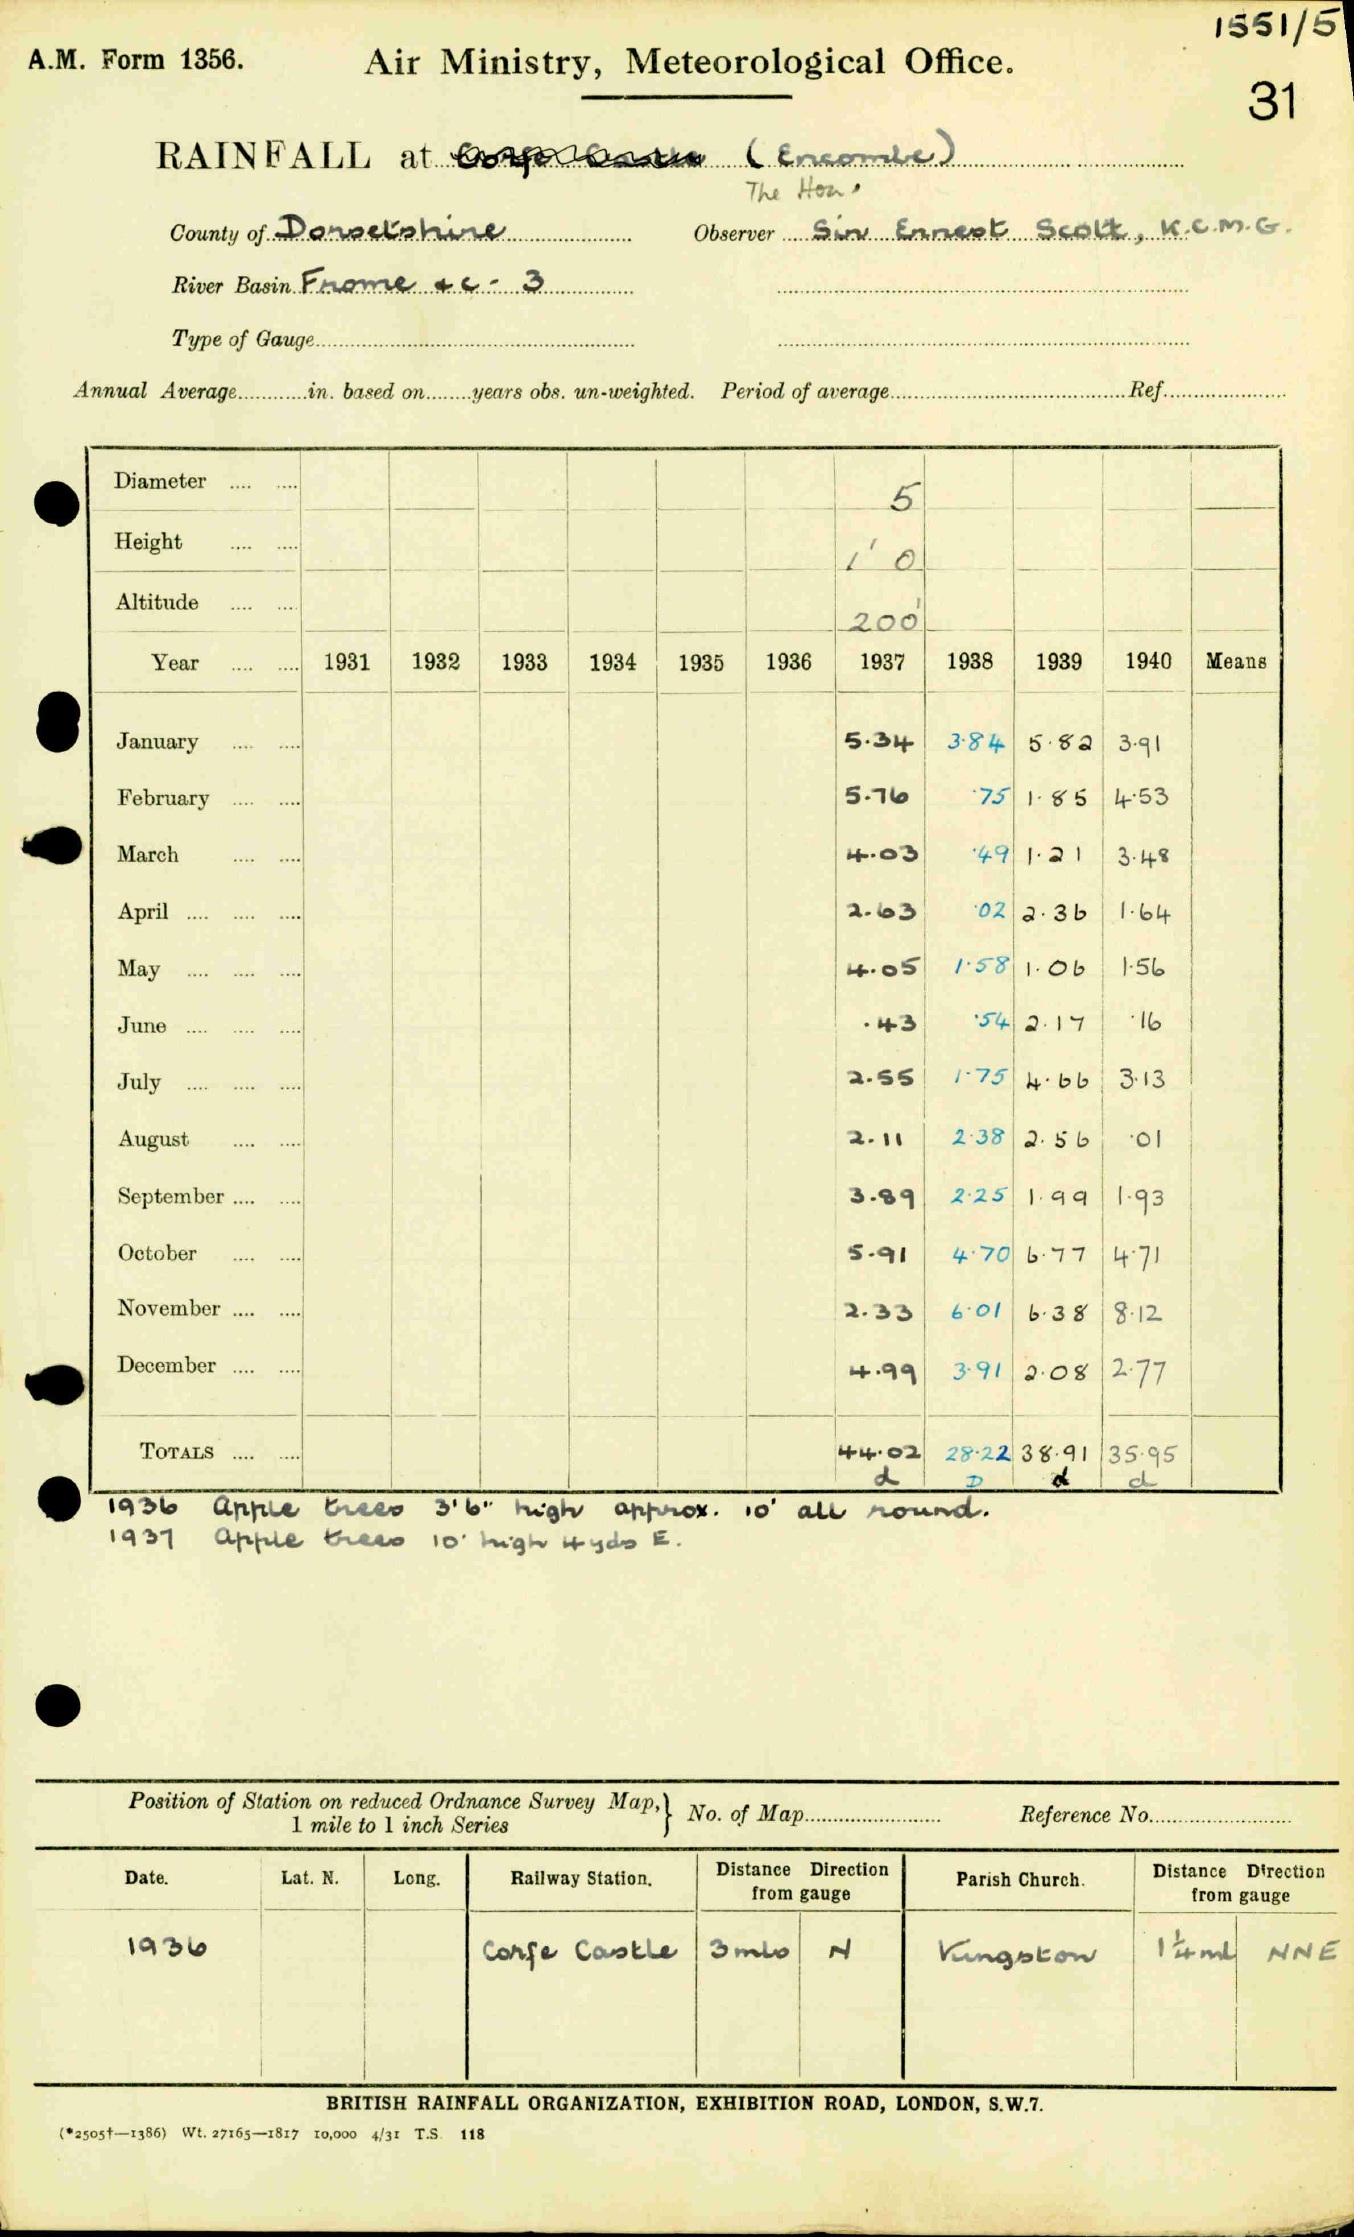 1551/5
A.M. Form 1356. Air Ministry, Meteorological Office.
31
RAINFALL at Corfe Castle (Encombe)
The Hon.
County of Dorsetshire Observer Sir Ernest Scott, K.C.M.G.
River Basin Frome &c - 3
Type of Gauge
Annual Average in. based on years obs. un-weighted. Period of average Ref.
Diameter 5
Height 1' 0
Altitude 200'
Year 1931 1932 1933 1934 1935 1936 1937 1938 1939 1940 Means
January 5.34 3.84 5.82 3.91
February 5.76 .75 1.85 4.53
March 4.03 .49 1.21 3.48
April 2.63 .02 2.36 1.64
May 4.05 1.58 1.06 1.56
June .43 .54 2.17 .16
July 2.55 1.75 4.66 3.13
August 2.11 2.38 2.56 .01
September 3.89 2.25 1.99 1.93
October 5.91 4.70 6.77 4.71
November 2.33 6.01 6.38 8.12
December 4.99 3.91 2.08 2.77
TOTALS 44.02 28.22 38.91 35.95
d D d d
1936 Apple trees 3'6" high approx. 10' all round.
1937 Apple trees 10' high 4yds E.
Position of Station on reduced Ordnance Survey Map, } No. of Map Reference No.
1 mile to 1 inch Series
Date. Lat. N. Long. Railway Station. Distance Direction from gauge Parish Church. Distance Direction from gauge
1936 Corfe Castle 3mls N Kingston 1¼ml NNE
BRITISH RAINFALL ORGANIZATION, EXHIBITION ROAD, LONDON, S.W.7.
(*2505†—1386) Wt. 27165—1817 10,000 4/31 T.S. 118